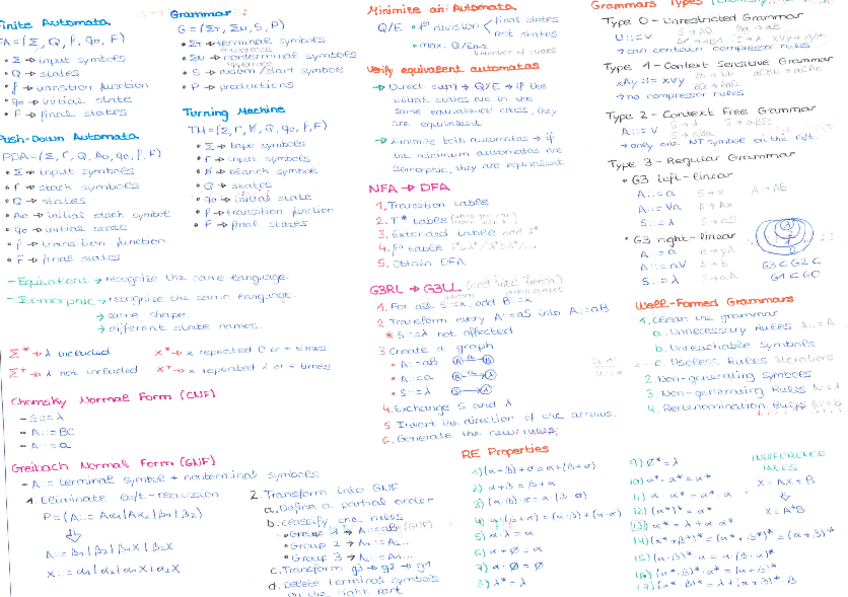 Finite Automata
FA=(Σ, Q, f, q0, F)
• Σ → input symbols
• Q → states
• f → transition function
• q0 → initial state
• F → final states
Push-Down Automata
PDA=(Σ, Γ, Q, A0, q0, f, F)
• Σ → input symbols
• Γ → stack symbols
• Q → states
• A0 → initial stack symbol
• q0 → initial state
• f → transition function
• F → final states
- Equivalent → recognize the same language.
- Isomorphic → recognize the same language.
→ same shape
→ different state names.
Σ* → λ included
x* → x repeated 0 or + times
Σ+ → λ not included
x+ → x repeated 1 or + times
Chomsky Normal Form (CNF)
- S::= λ
- A::= BC
- A::= a
Greibach Normal Form (GNF)
- A::= terminal symbol + nonterminal symbols
1. Eliminate left-recursion
P=(A::= Aα1|Aα2|β1|β2)
A::= β1|β2|β1X|β2X
X::= α1|α2|α1X|α2X
2. Transform into GNF
a. Define a partial order
b. Classify the rules
• Group 1 → A::= aB (GNF)
• Group 2 → Ai::= Aj...
• Group 3 →
c. Transform g3 → g2 → g1
d. Delete terminal symbols
on the right part
Grammar:
G = (ΣT, ΣN, S, P)
• ΣT → terminal symbols
• ΣN → nonterminal symbols
• S → axiom/start symbol
• P → productions
Turning Machine
TM=(Σ, Γ, b, Q, q0, f, F)
• Σ → tape symbols
• Γ → input symbols
• b → branch symbol
• Q → states
• q0 → initial state
• f → transition function
• F → final states
Minimize an Automata
Q/E • 1st division
final states
rest states
• max. Q/En-2
number of states
Verify equivalent automatas
→ Direct sum → Q/E → if the
initial states are in the
same equivalence class, they
are equivalent
→ Minimize both automatas → if
the minimum automatas are
isomorphic, they are equivalent.
NFA → DFA
1. Transition table
2. T* table
3. Extended table
4. f* table
5. Obtain DFA
G3RL → G3LL
1. For all S::=x, add B::=x
2. Transform every A::=aS into A::=aB
* S::=λ not affected
3. Create a graph
• A::=aB
• A::=a
• S::=λ
4. Exchange S and λ
5. Invert the direction of the arrows.
6. Generate the new rules.
RE Properties
1) (α+β)+σ=α+(β+σ)
2) α+β=β+α
3) (α·β)·σ=α·(β·σ)
4) α·(β+σ)=(α·β)+(α·σ)
5) α·λ=α
6) α+Ø=α
7) α·Ø=Ø
8) λ*=λ
9) Ø*=λ
10) α*·α*=α*
11) α·α*=α*·α
12) (α*)*=α*
13) α*=λ+α·α*
14) (α*+β*)*=(α*·β*)*=(α+β)*
15) (α·β)*·α=α·(β·α)*
16) (α*·β)*·α*=(α+β)*
17) (α*·β)*=λ+(α+β)*·β
INDIFFERENCE
RULES
X=AX+B
X=A*B
Grammars Types
Type 0 - Unrestricted Grammar
U::=V
→ can contain compressor rules
Type 1 - Context Sensitive Grammar
xAy::=xvy
→ no compressor rules
Type 2 - Context Free Grammar
A::=V
→ only one NT symbol on the left
Type 3 - Regular Grammar
• G3 left-linear
A::=a
A::=Va
S::=λ
• G3 right-linear
A::=a
A::=aV
S::=λ
G3⊂G2⊂
G1⊂G0
Well-Formed Grammars
1. Clean the grammar
a. Unnecessary Rules
b. Unreachable Symbols
c. Useless Rules
2. Non-generating Symbols
3. Non-generating Rules
4. Redenomination Rules